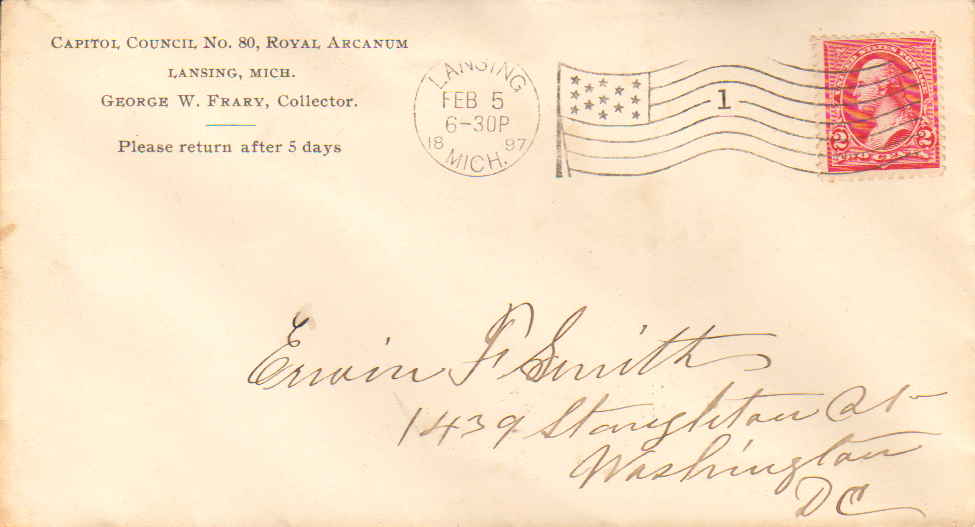 CAPITOL COUNCIL No. 80, ROYAL ARCANUM
LANSING, MICH.
GEORGE W. FRARY, Collector.
Please return after 5 days
LANSING
FEB 5
6-30P
18 97
MICH.
1
2 2
TWO CENTS
Erwin F Smith
1439 Staughton St
Washington
DC